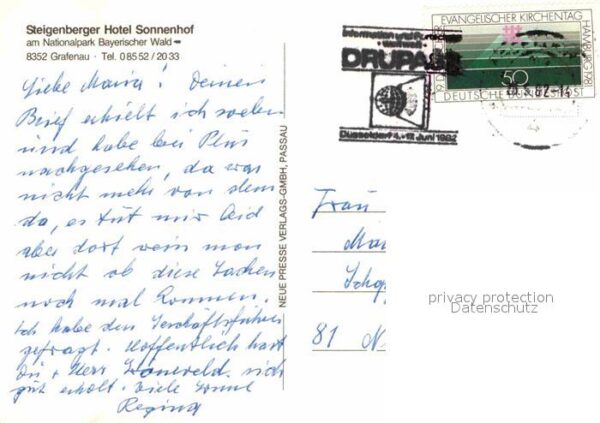 Steigenberger Hotel Sonnenhof
am Nationalpark Bayerischer Wald
8352 Grafenau · Tel. 0 85 52 / 20 33
Liebe Maria! Deinen
Brief erhielt ich soeben
und habe bei Plus
nachgesehen, da war
nicht mehr von dem
da, es tut mir leid
aber dort weiß man
nicht ob diese Sachen
noch mal kommen.
Ich habe den Geschäftsführer
gefragt. Hoffentlich hast
Du + Herr sich
gut erholt. Viele
Regina
NEUE PRESSE VERLAGS-GMBH, PASSAU
Information und
weltweit
DRUPA
Düsseldorf 4.-17. Juni 1982
EVANGELISCHER KIRCHENTAG
HAMBURG 1981
50
DEUTSCHE BUNDESPOST
Frau
81
privacy protection
Datenschutz